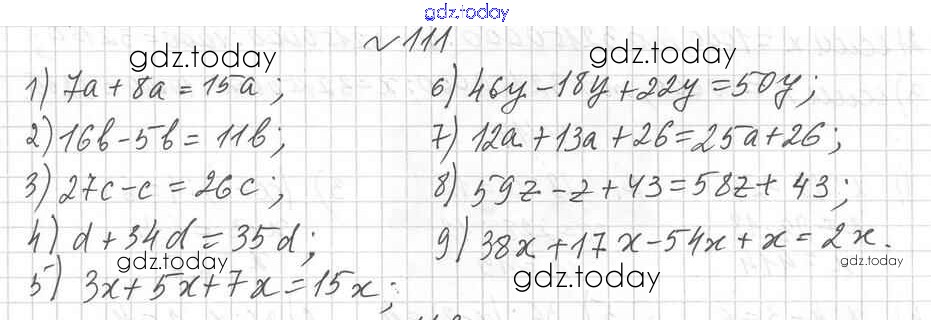 gdz.today
№ 111
gdz.today gdz.today
1) 7a + 8a = 15a;
2) 16b - 5b = 11b;
3) 27c - c = 26c;
4) d + 34d = 35d;
gdz.today
5) 3x + 5x + 7x = 15x;
6) 46y - 18y + 22y = 50y;
7) 12a + 13a + 26 = 25a + 26;
8) 59z - z + 43 = 58z + 43;
9) 38x + 17x - 54x + x = 2x.
gdz.today
gdz.today